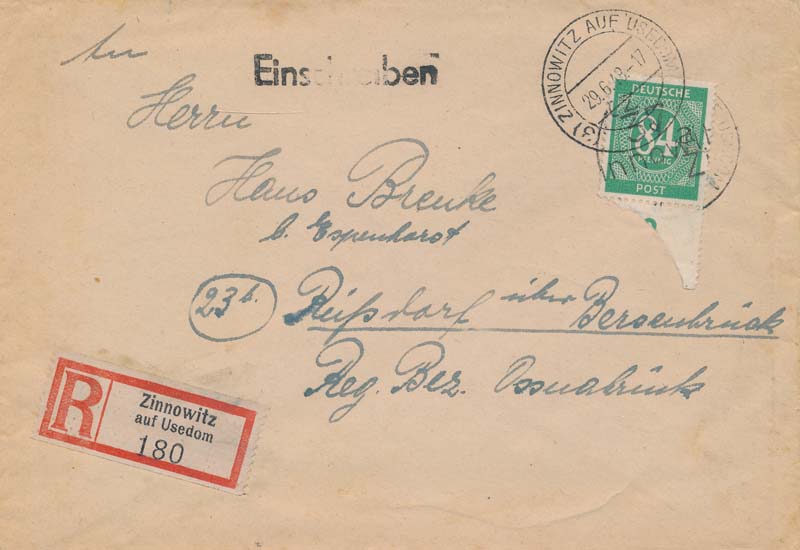 An
Einschreiben
Herrn
Hans Brenke
b. Espenhorst
23b. Reißdorf über Bersenbrück
Reg. Bez. Osnabrück
(3) ZINNOWITZ AUF USEDOM
29.6.48.-17
DEUTSCHE
84
PFENNIG
POST
R
Zinnowitz
auf Usedom
180